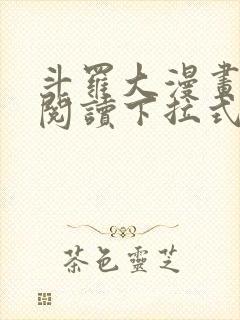 斗羅大漫畫
閱讀下拉式
茶色靈芝